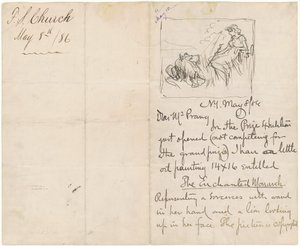 F. S. Church
May 8th/86
N.Y. May 8/86
Dear Mr Prang
In the Prize Exhibition
just opened (not competing for
the grand prize) I have a little
oil painting 14x16 entitled
The Enchanted
Representing a sorceress with wand
in her hand and a lion looking
up in her face. The picture is